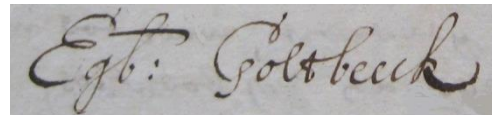 Egb: Goltbeeck